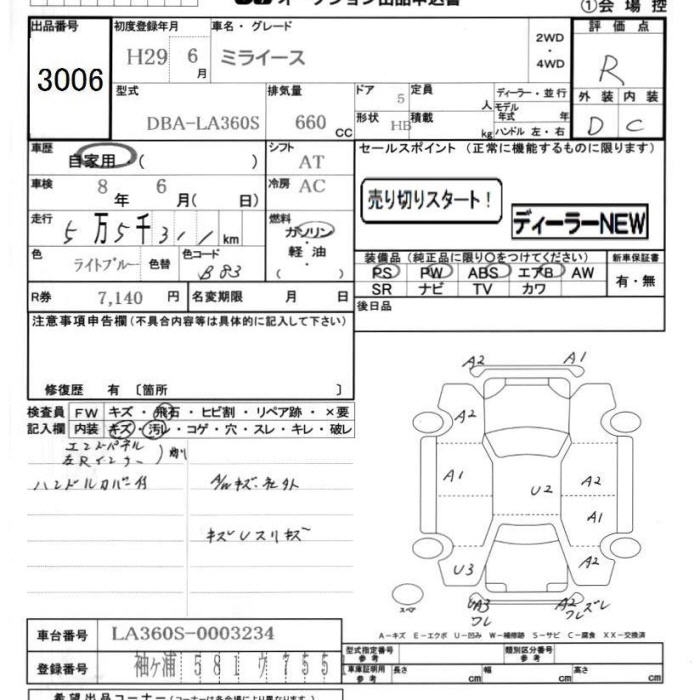 オークション出品申込書
①会場控
出品番号
3006
初度登録年月
H29 6 月
車名・グレード
ミライース
2WD
・
4WD
評価点
R
外装 内装
D C
型式
DBA-LA360S
排気量
660 CC
ドア
5
定員
人
形状
HB
積載
kg
ディーラー・並行
モデル年式 年
ハンドル 左・右
車歴
自家用・( )
シフト
AT
車検
8 年 6 月( 日)
冷房
AC
走行
5万5千311 km
燃料
ガソリン
・
軽油
( ・ )
色
ライトブルー
色替
色コード
B83
R券
7,140 円
名変期限 月 日
セールスポイント(正常に機能するものに限ります)
売り切りスタート!
ディーラーNEW
装備品(純正品に限り○をつけてください)
新車保証書
PS PW ABS エアB AW
SR ナビ TV カワ
有・無
後日品
注意事項申告欄(不具合内容等は具体的に記入して下さい)
修復歴 有〔箇所 〕
検査員
記入欄
FW キズ・飛石・ヒビ割・リペア跡・×要
内装 キズ・汚れ・コゲ・穴・スレ・キレ・破レ
エンドパネル
左Rインナー
ハンドルカバー付
A/Wキズ・社外
キズUスリキズ
A2 A1
A2
A1 U2 A2
A1
U3 A2
A3 A2
ワレ ワレズレ
スペア
A-キズ E-エクボ U-凹み W-補修跡 S-サビ C-腐食 XX-交換済
車台番号
LA360S-0003234
登録番号
袖ヶ浦 581 ウ 7551
型式指定番号
参考
類別区分番号
参考
車庫証明用
参考
長さ cm
幅 cm
高さ cm
希望出品コーナー(コーナーは各会場により異なります)